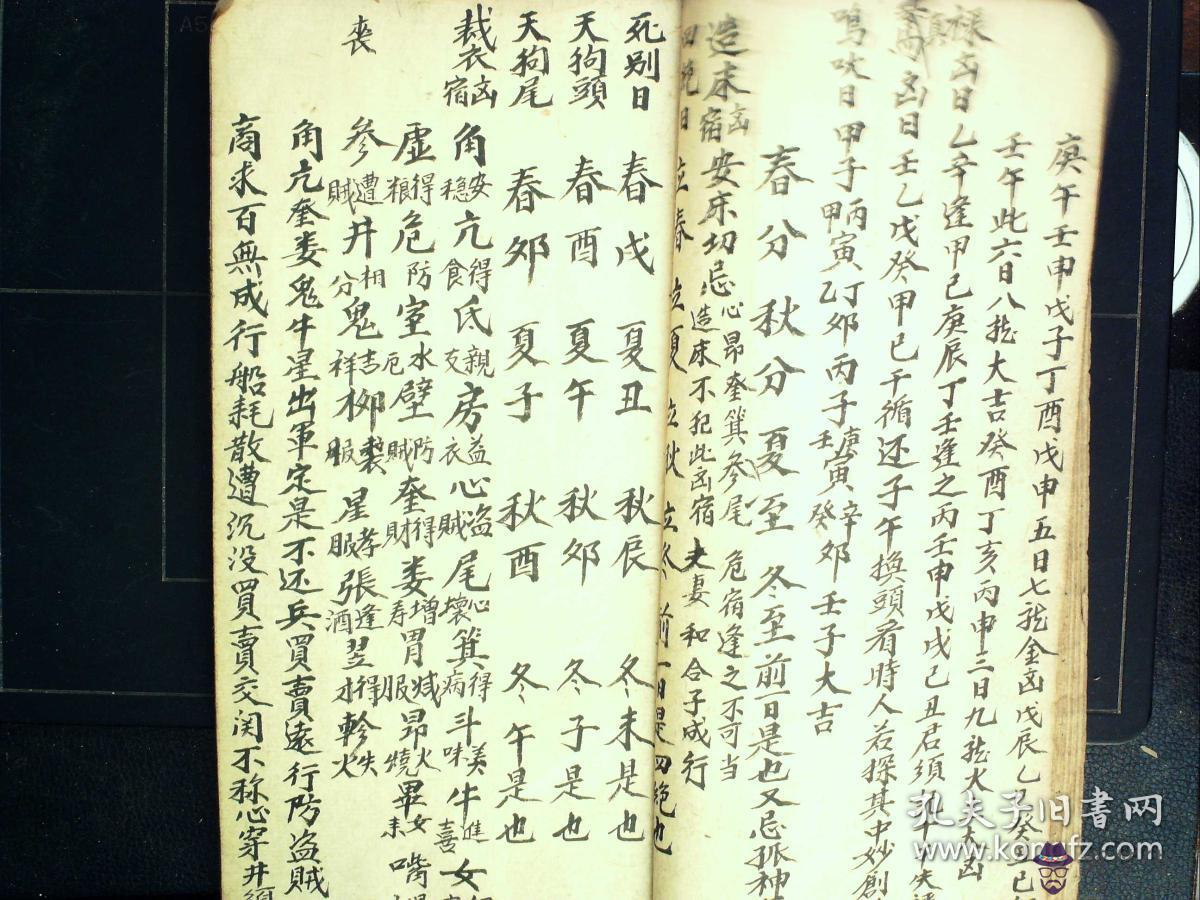 庚午壬申戊子丁酉戊申五日七龍金凶戊辰乙癸巳
壬午此六日八龍大吉癸酉丁亥丙申三日九龍火大凶
祿凶日乙辛逢甲已庚辰丁壬逢之丙壬申戊戌己丑君須
凶日壬乙戊癸甲已干循还子午換頭看時人若探其中妙創
鳴吠日甲子丙寅丁卯丙子庚寅辛卯壬子大吉
甲乙壬癸
春分 秋分 夏至 冬至前一日是也又忌孤神
造床凶宿安床切忌心昴奎箕參尾危宿逢之不可当
造床不犯此凶宿夫妻和合子成行
四絶日立春 立夏 立秋 立冬前一日是四絶也
死别日 春戌 夏丑 秋辰 冬未是也
天狗頭 春酉 夏午 秋卯 冬子是也
天狗尾 春卯 夏子 秋酉 冬午是也
裁衣凶宿 角安穩亢得食氐親友房益衣心盗賊尾心壞箕得病斗美味牛進喜女
虛得粮危防室水厄壁防賊奎得財婁增寿胃減服昴火燒畢女耒嘴
喪 參遭賊井相分鬼吉祥柳喪服星孝服張逢酒翌得水軫失火
角亢奎婁鬼牛星出軍定是不还兵買賣遠行防盗賊
商求百無成行船耗散遭沉没買賣交関不称心穿井須
孔夫子旧書网
www.kongfz.com